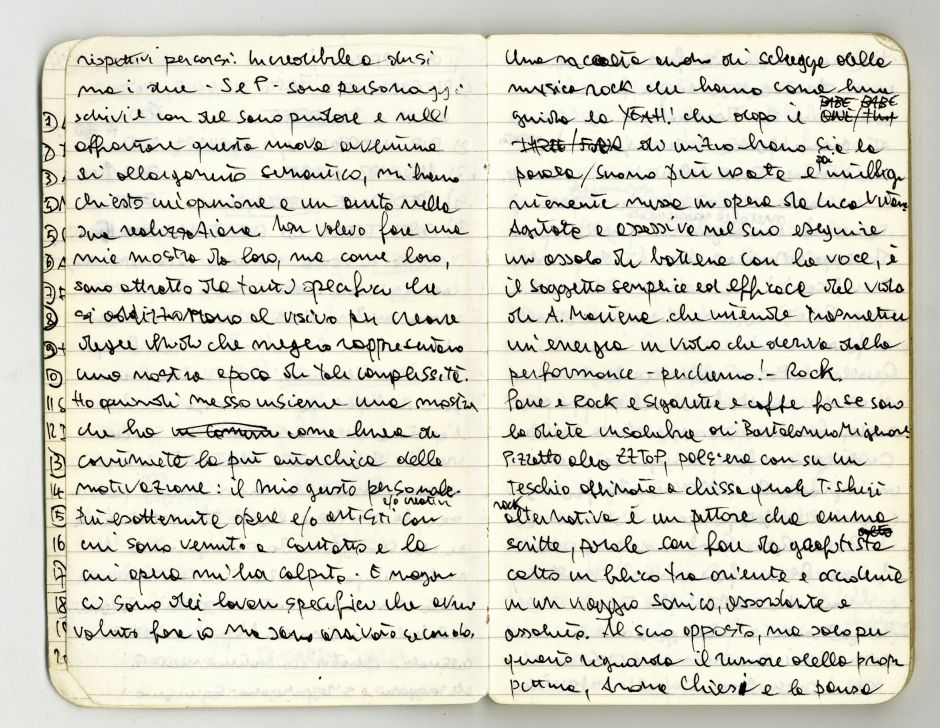 rispettivi percorsi. Incredibile a dirsi
ma i due - S e P - sono personaggi
schivi e con del sano pudore e nell'
affrontare questa nuova avventura
di allargamento semantico, mi hanno
chiesto un'opinione e un aiuto nella
sua realizzazione. Non volevo fare una
mia mostra da loro, ma come loro,
sono attratto da tanti specifici che
si indirizzano al visivo per creare
degli snodi che meglio rappresentano
una nostra epoca di tale complessità.
Ho quindi messo insieme una mostra
che ha in comune come linea di
continuità la più anarchica delle
motivazione: il mio gusto personale.
Più esattamente opere e/o artisti e/o creativi con
cui sono venuto a contatto e la
cui opera mi ha colpito. E magari
ci sono dei lavori specifici che avrei
voluto fare io ma sono arrivato secondo.
1
2
3
4
5
6
7
8
9
10
11
12
13
14
15
16
17
18
19
2
Una raccolta anche di schegge della
musica rock che hanno come linea
guida lo YEAH! che dopo il ONE/TWO BABE BABE
THREE/FOUR di inizio brano sia la
parola/suono più usata e poi intelligen
temente messa in opera da Luca Vitone
Agitato e ossessivo nel suo eseguire
un assolo di batteria con la voce, è
il soggetto semplice ed efficace del video
di A. Mariena che intende trasmettere
un'energia in video che deriva dalla
performance - perchenno! - Rock.
Pane e Rock e sigarette e caffè forse sono
la dieta insalubre di Bartolomeo Migliore
Pizzetto alla ZZTOP, palestra con su un
Teschio affinato a chissà quale T-shirt
rock alternativa è un pittore che anima
scritte, parole con fare da graffitista
colto in bilico tra oriente e occidente
in un viaggio sonico, assordante e
assoluto. Al suo opposto, ma solo per
quanto riguarda il rumore della propria
pittura, Chiesi e la pausa